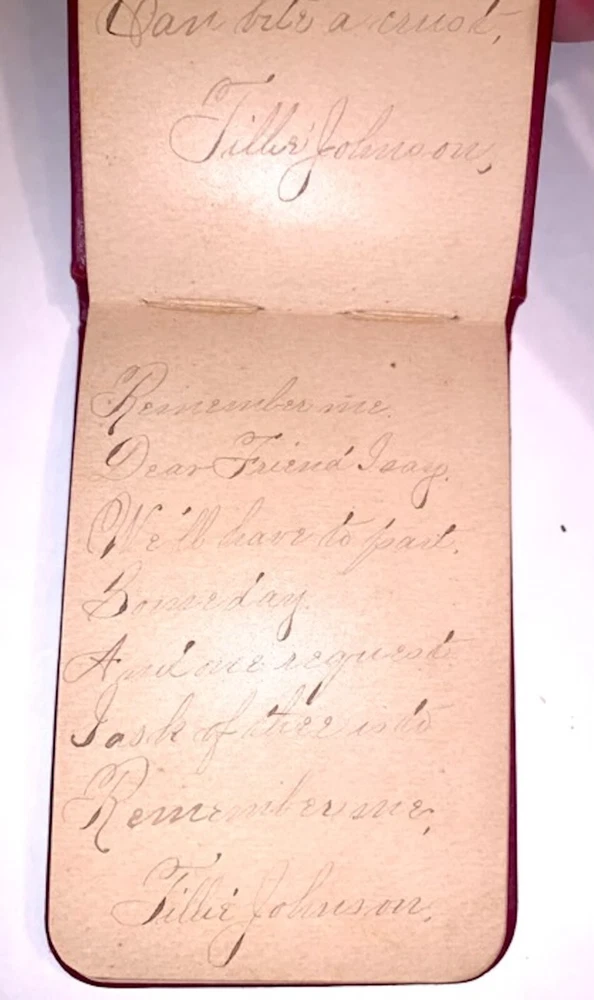 Can bite a crust,
Tillie Johnson,
Remember me.
Dear Friend I say.
We'll have to part.
Someday.
And one request
I ask of thee is to
Remember me,
Tillie Johnson.